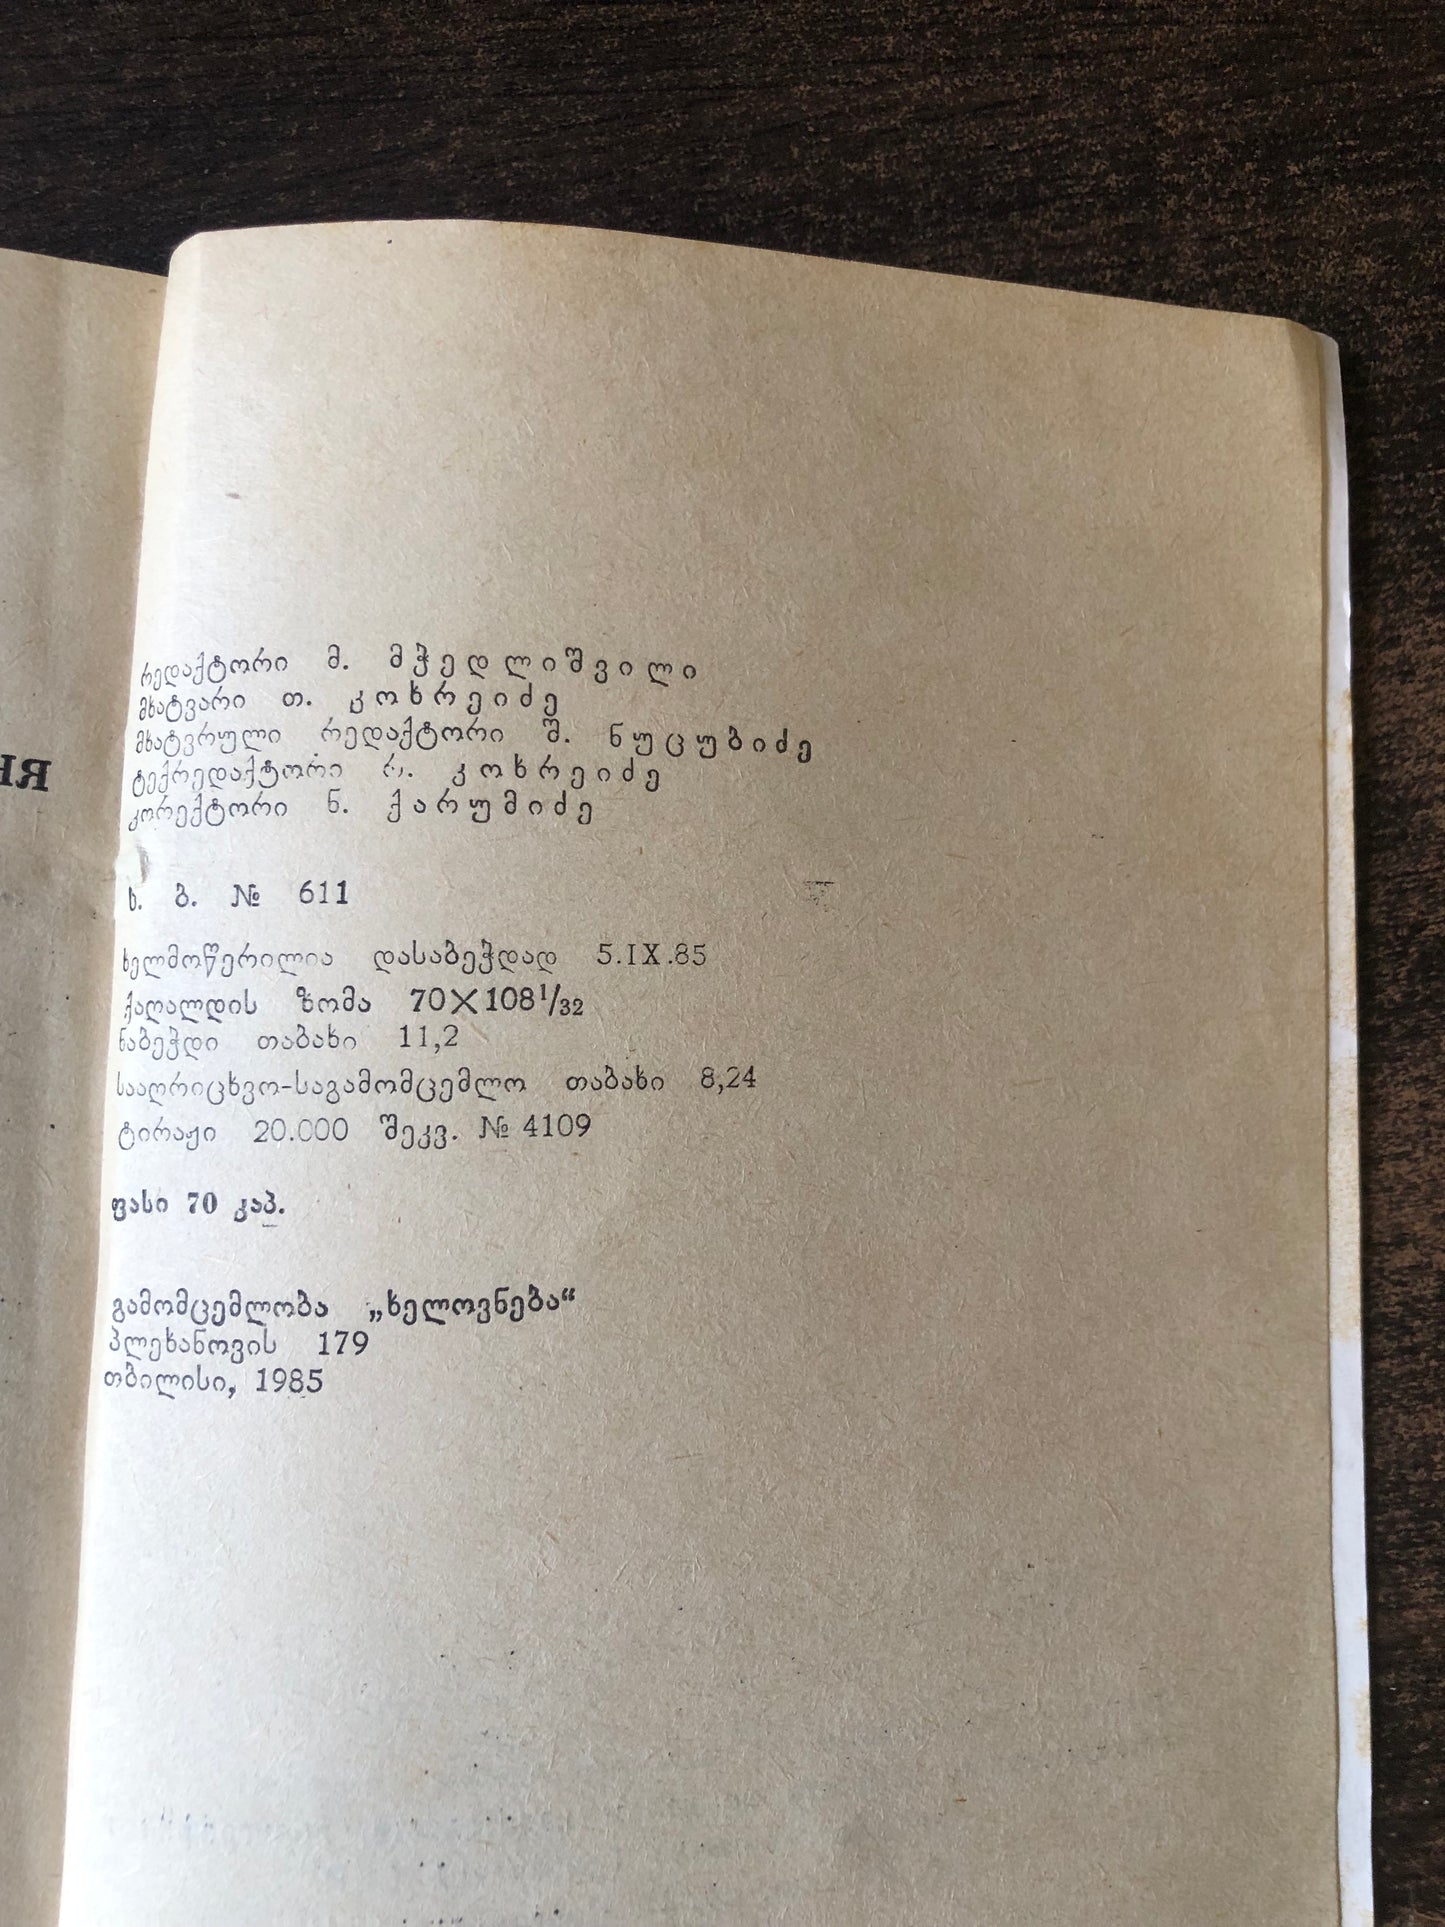 რედაქტორი მ. მჭედლიშვილი
მხატვარი თ. კოხრეიძე
მხატვრული რედაქტორი შ. ნუცუბიძე
ტექრედაქტორი რ. კოხრეიძე
კორექტორი ნ. ქარუმიძე
ს. ბ. № 611
ხელმოწერილია დასაბეჭდად 5.IX.85
ქაღალდის ზომა 70×108¹/₃₂
ნაბეჭდი თაბახი 11,2
სააღრიცხვო-საგამომცემლო თაბახი 8,24
ტირაჟი 20.000 შეკვ. № 4109
ფასი 70 კაპ.
გამომცემლობა „ხელოვნება“
პლეხანოვის 179
თბილისი, 1985